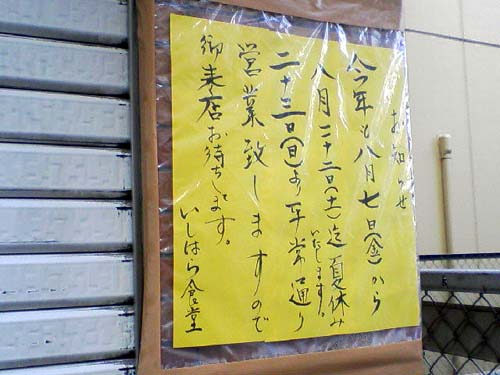 お知らせ
今年も八月七日(金)から
八月二十二日(土)迄夏休み
いたします。
二十三日(日)より平常通り
営業致しますので
御来店お待ちします。
いしはら食堂